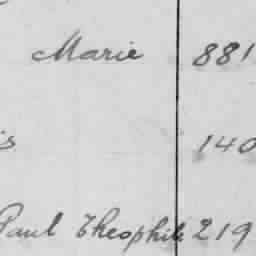 Marie 881
is 140
Paul Theophile 219